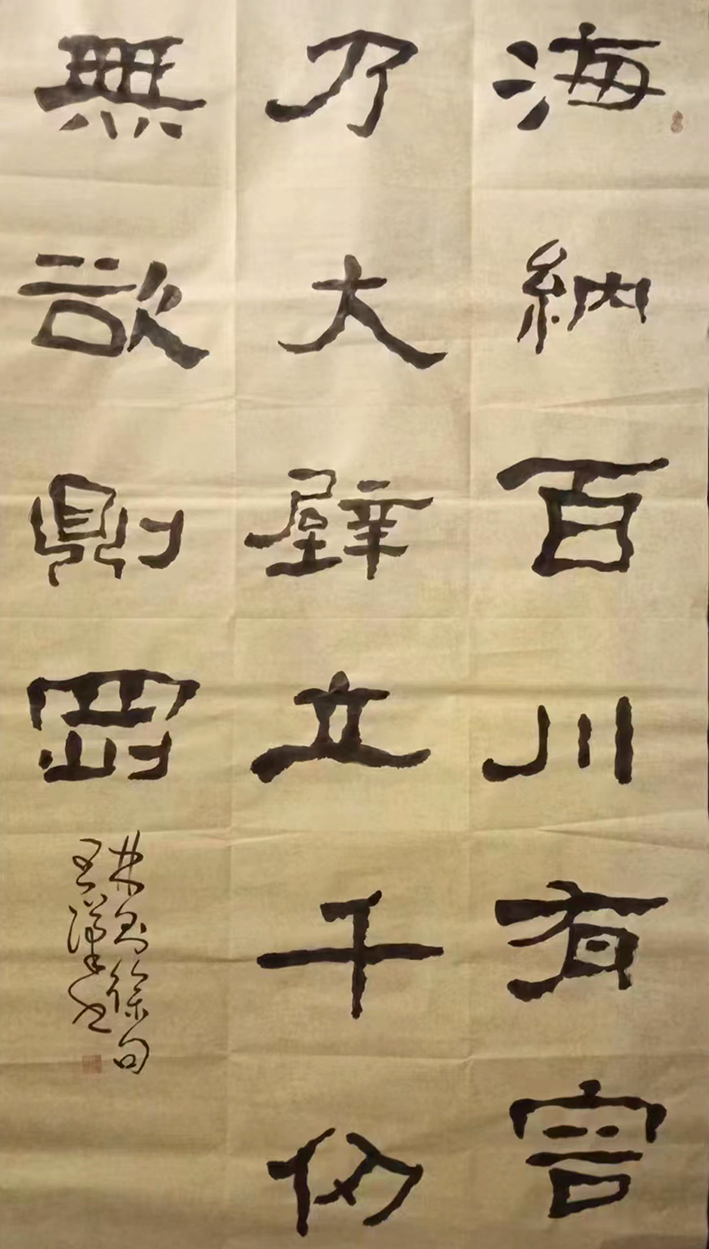 海納百川有容
乃大壁立千仞
無欲則剛
林則徐句